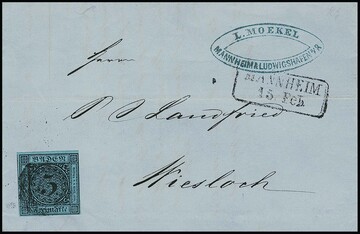 L. MOEKEL
MANNHEIM & LUDWIGSHAFEN a/R
MANNHEIM
15 Feb.
Herrn
P J Landfried
Wiesloch
BADEN
3
Freimarke